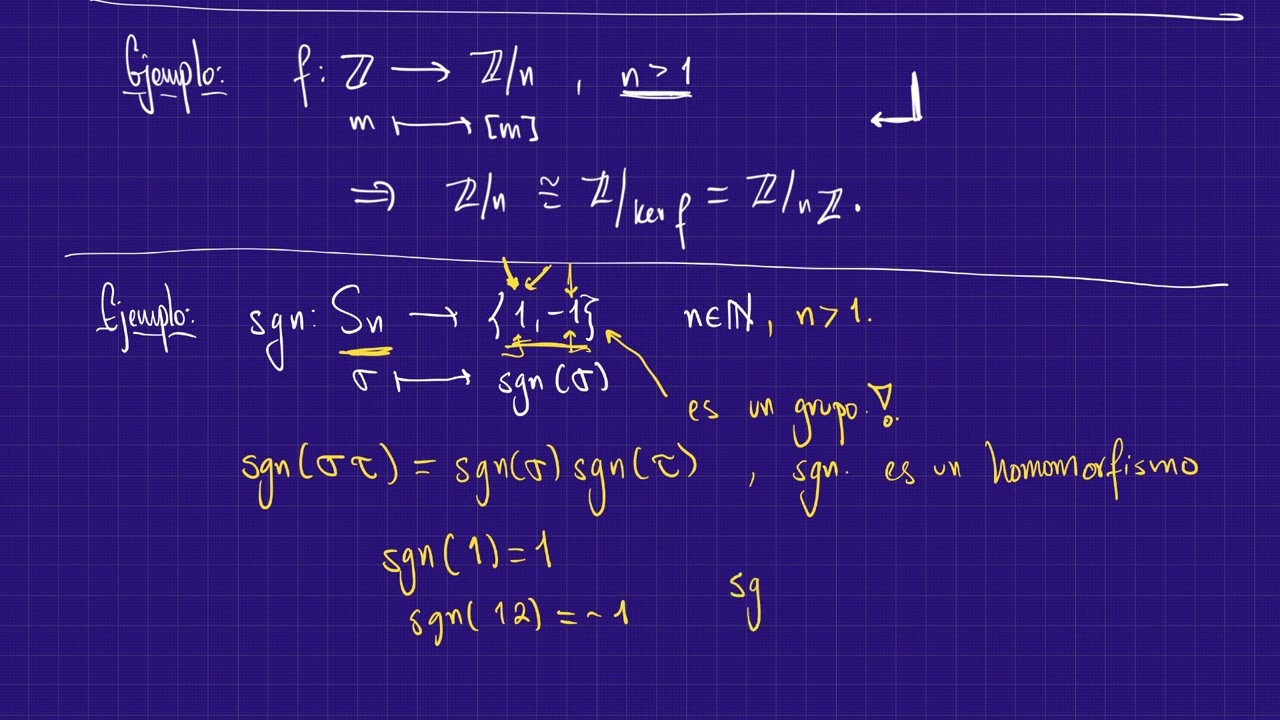 Ejemplo: f: ℤ → ℤ/n , n > 1
m ↦ [m]
⇒ ℤ/n ≅ ℤ/ker f = ℤ/nℤ.
Ejemplo: sgn: Sn → {1, -1} n∈ℕ, n > 1.
σ ↦ sgn(σ)
es un grupo!
sgn(στ) = sgn(σ) sgn(τ) , sgn. es un homomorfismo
sgn(1) = 1
sg
sgn(12) = -1